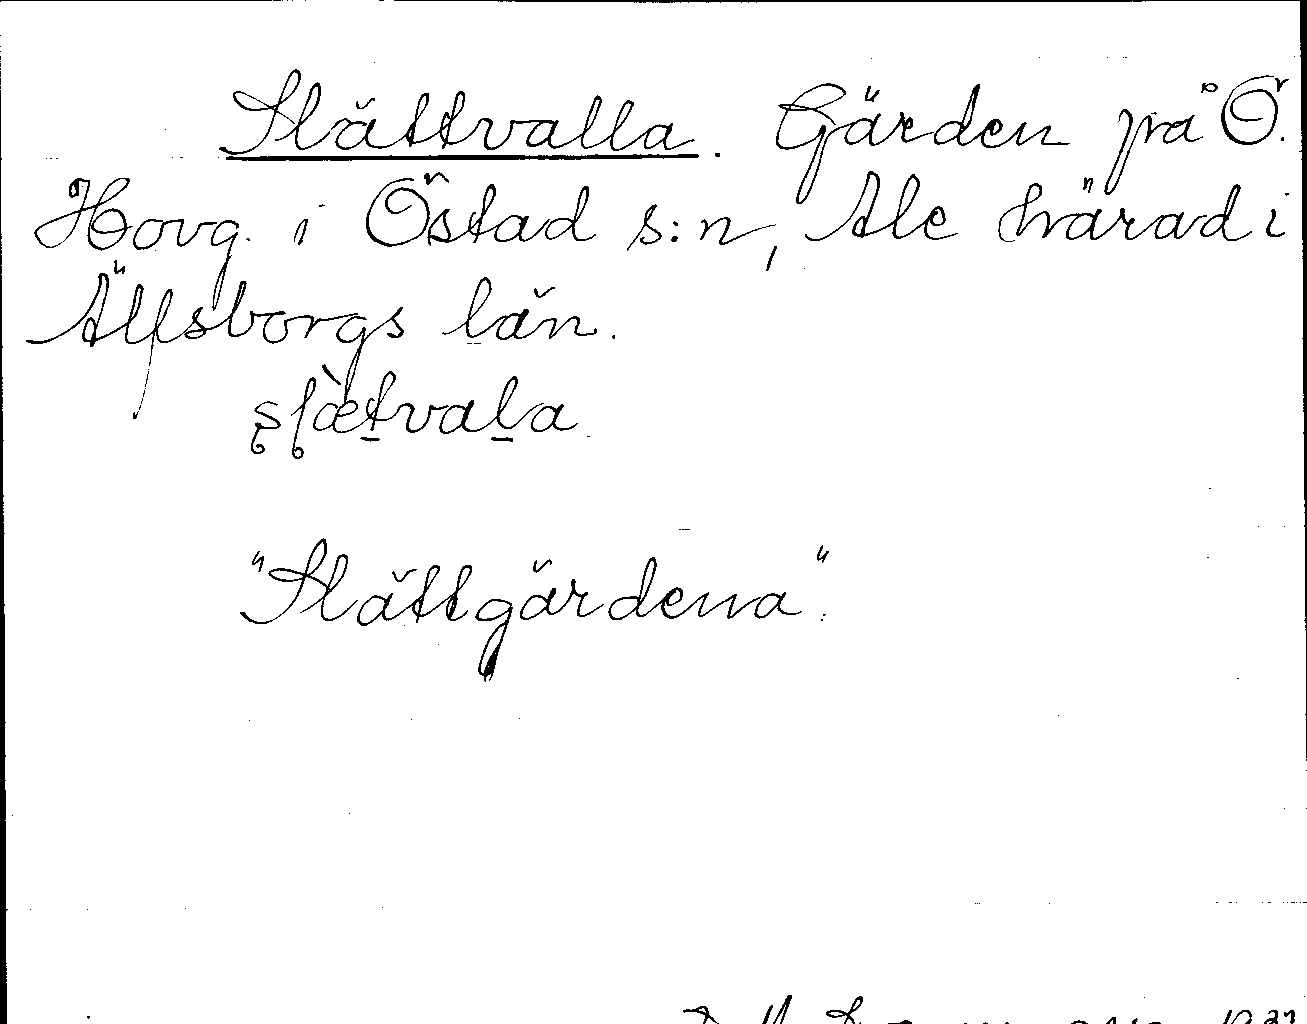 Slättvalla. Gärden på Ö.
Hovg. i Östad s:n, Ale härad i
Älfsborgs län.
slætvala
"Slättgärdena".